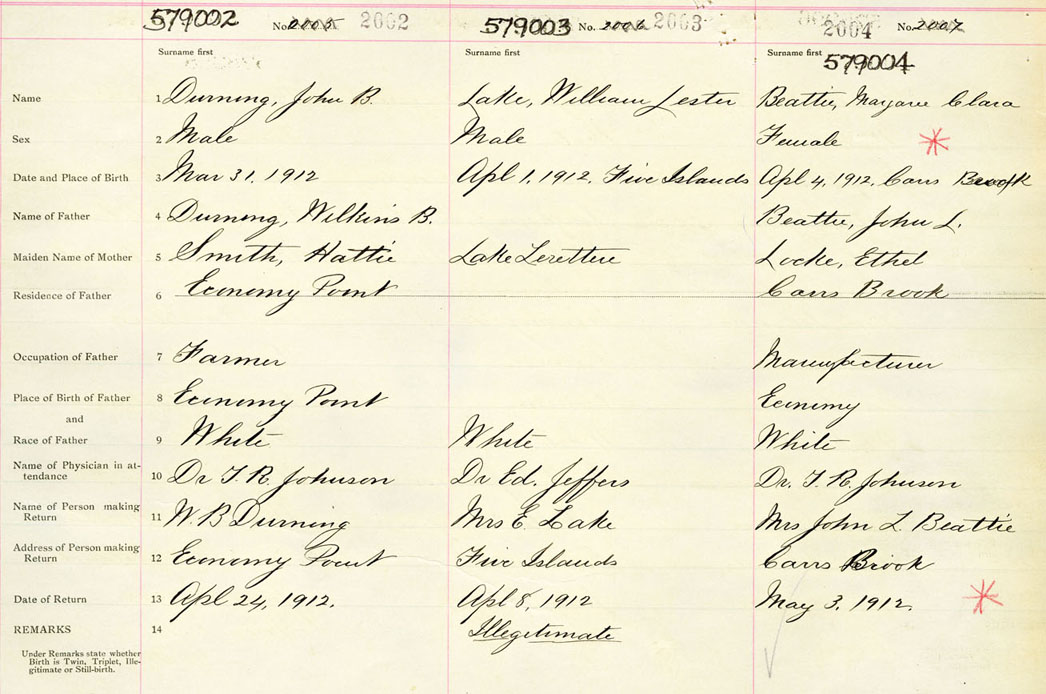 579002 No. 2005 2002 579003 No. 2006 2003 2004 No. 2007
Surname first Surname first Surname first 579004
Name 1 Durning, John B. Lake, William Lester Beattie, Margaret Clara
Sex 2 Male Male Female
Date and Place of Birth 3 Mar 31, 1912 Apl 1, 1912. Five Islands Apl 4, 1912, Carrs Brook
Name of Father 4 Durning, Wilkins B. Beattie, John L.
Maiden Name of Mother 5 Smith, Hattie Lake Locke, Ethel
Residence of Father 6 Economy Point Carrs Brook
Occupation of Father 7 Farmer Manufacturer
Place of Birth of Father 8 Economy Point Economy
and
Race of Father 9 White White White
Name of Physician in at-
tendance 10 Dr T. R. Johnson Dr Ed. Jeffers Dr. T. R. Johnson
Name of Person making
Return 11 W. B Durning Mrs E. Lake Mrs John L Beattie
Address of Person making
Return 12 Economy Point Five Islands Carrs Brook
Date of Return 13 Apl 24, 1912. Apl 8, 1912 May 3, 1912.
REMARKS 14 Illegitimate
Under Remarks state whether
Birth is Twin, Triplet, Ille-
gitimate or Still-birth.